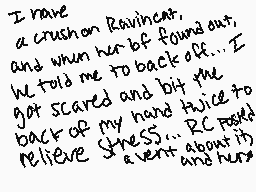 I have
a crush on Ravincat,
and when her bf found out,
he told me to back off... I
got scared and bit the
back of my hand twice to
relieve stress... RC posted
a vent about it,
and hers